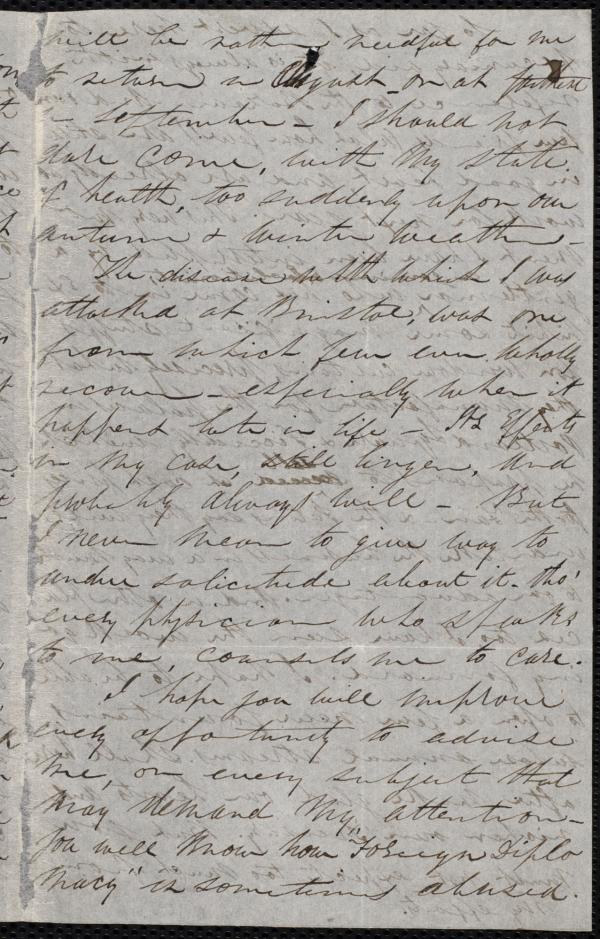 will be rather needful for me
to return in August or at farthest
in September - I should not
dare come, with my state
of health, too suddenly upon our
autumn & winter weather -
The disease with which I was
attacked at Bristol, was one
from which few ever wholly
recover - especially when it
happens late in life - Its effects
in my case, still linger, and
probably always will - But
I never mean to give way to
undue solicitude about it - tho'
every physician who speaks
to me, counsels me to care.
I hope you will improve
every opportunity to advise
me, on every subject that
may demand my attention -
You well know how "Foreign Diplo
macy" is sometimes abused.